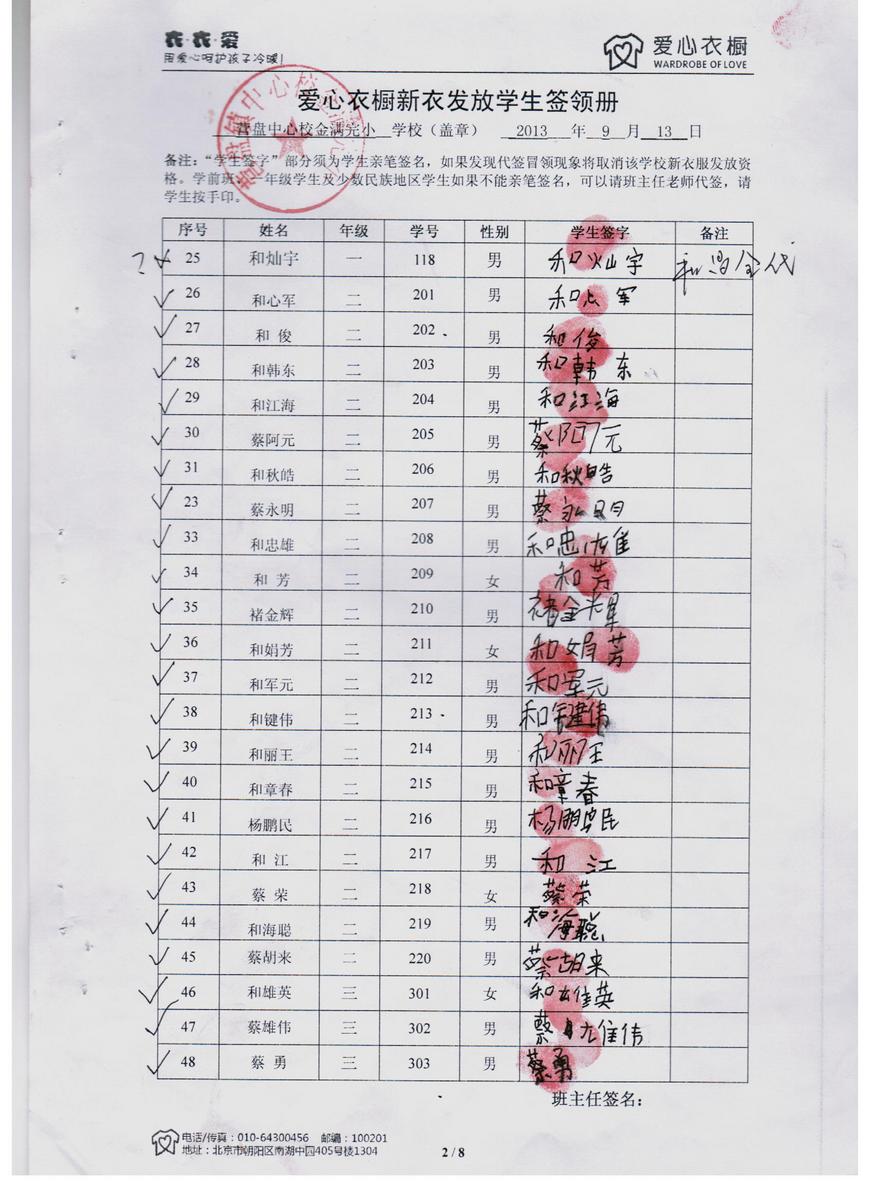 衣·衣·爱
用爱心呵护孩子冷暖!
爱心衣橱
WARDROBE OF LOVE
爱心衣橱新衣发放学生签领册
营盘中心校金满完小 学校（盖章） 2013 年 9 月 13 日
备注：“学生签字”部分须为学生亲笔签名，如果发现代签冒领现象将取消该学校新衣服发放资
格。学前班、一年级学生及少数民族地区学生如果不能亲笔签名，可以请班主任老师代签，请
学生按手印。
序号 姓名 年级 学号 性别 学生签字 备注
25 和灿宇 一 118 男 和灿宇
26 和心军 二 201 男 和心军
27 和 俊 二 202 男 和俊
28 和韩东 二 203 男 和韩东
29 和江海 二 204 男 和江海
30 蔡阿元 二 205 男 蔡阿元
31 和秋皓 二 206 男 和秋皓
23 蔡永明 二 207 男 蔡永明
33 和忠雄 二 208 男 和忠雄
34 和 芳 二 209 女 和芳
35 褚金辉 二 210 男 褚金辉
36 和娟芳 二 211 女 和娟芳
37 和军元 二 212 男 和军元
38 和键伟 二 213 男 和键伟
39 和丽王 二 214 男 和丽王
40 和章春 二 215 男 和章春
41 杨鹏民 二 216 男 杨鹏民
42 和 江 二 217 男 和江
43 蔡 荣 二 218 女 蔡荣
44 和海聪 二 219 男 和海聪
45 蔡胡来 二 220 男 蔡胡来
46 和雄英 三 301 女 和雄英
47 蔡雄伟 三 302 男 蔡雄伟
48 蔡 勇 三 303 男 蔡勇
班主任签名：
电话/传真：010-64300456 邮编：100201
地址：北京市朝阳区南湖中园405号楼1304
2 / 8